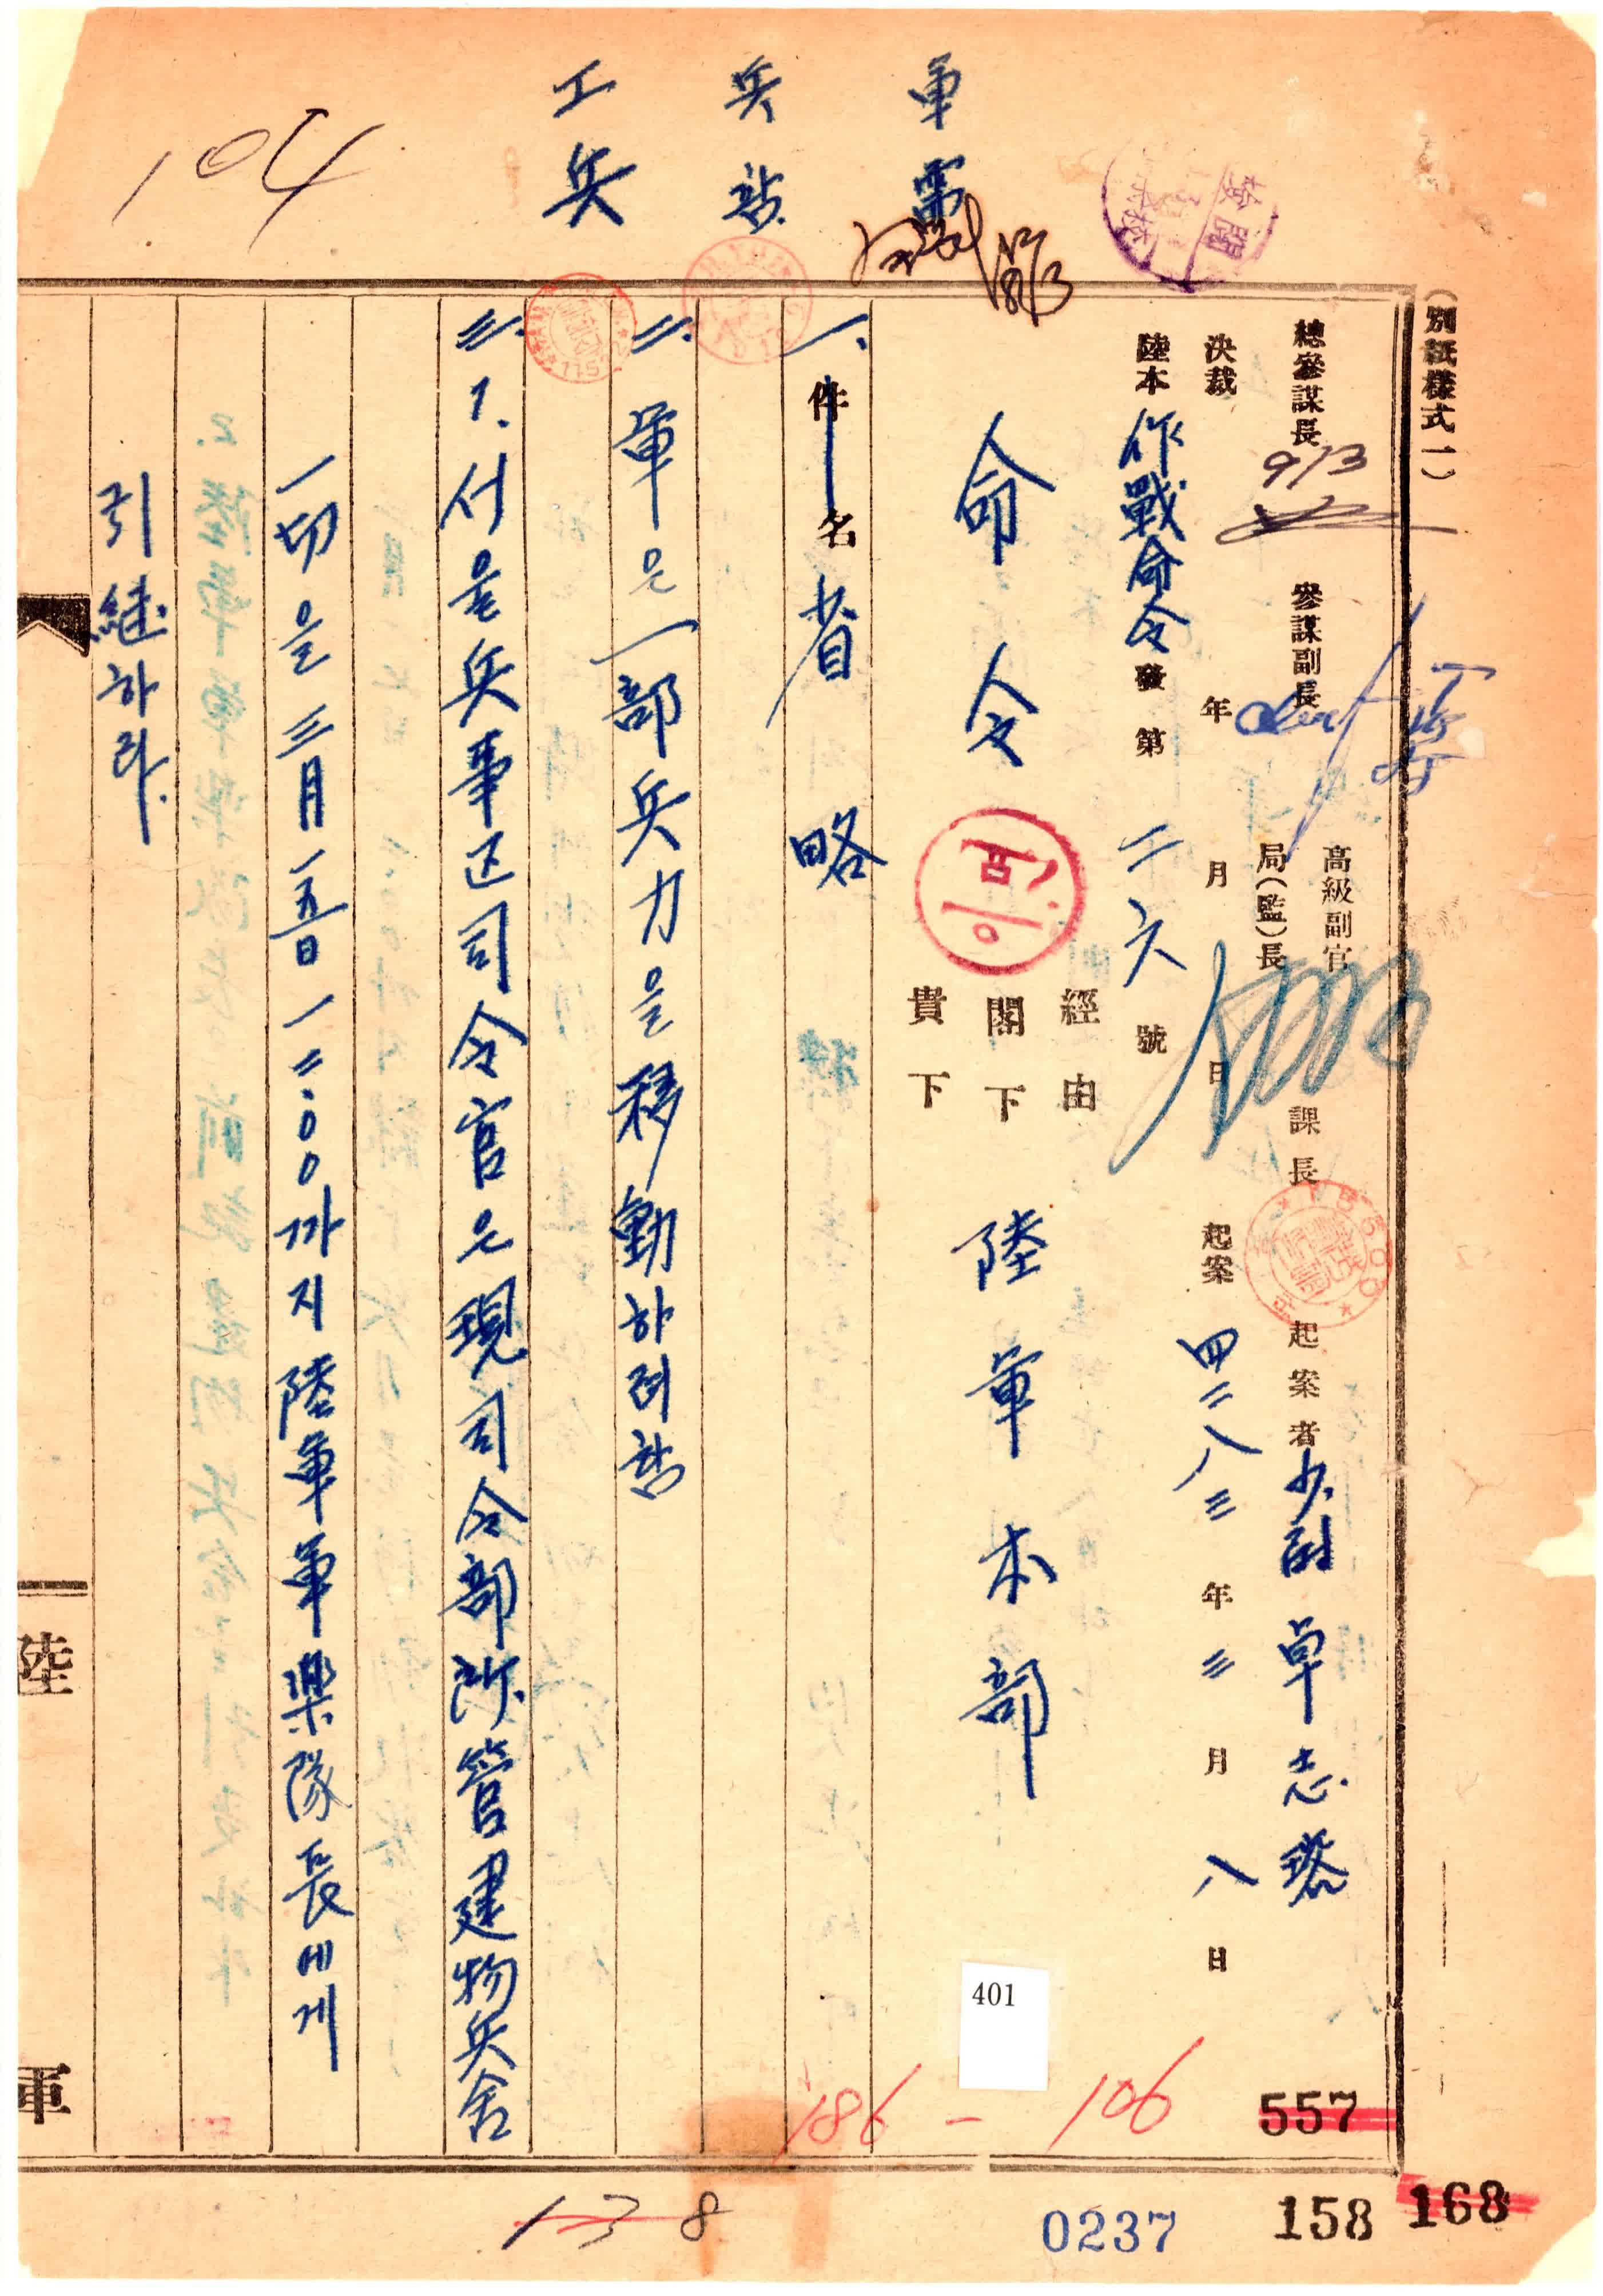 (別紙樣式一)
高級副官
總參謀長 9/3 參謀副長 局(監)長 課長 起案者 少尉 卓志瑢
決裁 年 月 日 起案 四二八三年三月八日
陸本 作戰命令 發第 二六 號
經由
命令 閣下 陸軍本部
貴下
一、件名 省略
二. 軍은 一部兵力을 移動하려함
三. 1. 서울兵事区司令官은 現司令部所管建物兵舍
一切을 三月一五日 一二:00까지 陸軍軍樂隊長에게
引継하라.
軍
兵站
工兵
104
陸
軍
401
186 - 106
557
138
0237
158
168